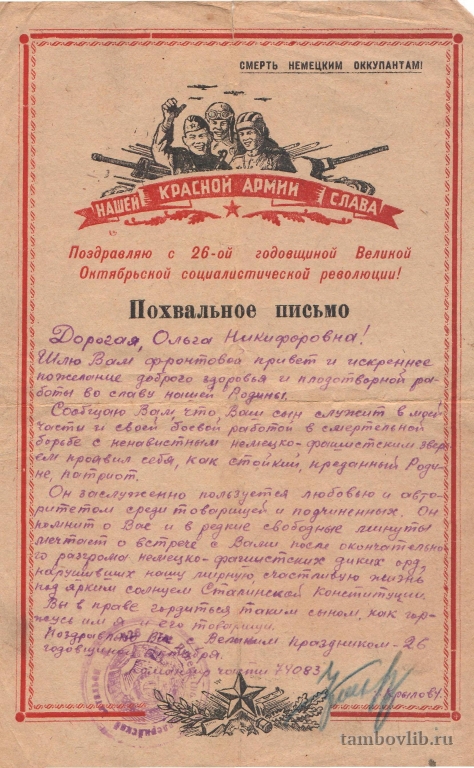 СМЕРТЬ НЕМЕЦКИМ ОККУПАНТАМ!
НАШЕЙ КРАСНОЙ АРМИИ СЛАВА
Поздравляю с 26-ой годовщиной Великой
Октябрьской социалистической революции!
Похвальное письмо
Дорогая, Ольга Никифоровна!
Шлю Вам фронтовой привет и искреннее
пожелание доброго здоровья и плодотворной ра-
боты во славу нашей Родины.
Сообщаю Вам, что, Ваш сын служит в моей
части и своей боевой работой в смертельной
борьбе с ненавистным немецко-фашистским звер
ем проявил себя, как стойкий, преданный Роди-
не, патриот.
Он заслуженно пользуется любовью и авто-
ритетом среди товарищей и подчиненных. Он
помнит о Вас и в редкие свободные минуты
мечтает о встрече с Вами после окончательно
го разгрома немецко-фашистских диких орд,
нарушивших нашу мирную счастливую жизнь
под ярким солнцем Сталинской Конституции.
Вы в праве гордиться таким сыном, как гор-
жусь им я и его товарищи.
Поздравляю Вас с Великим праздником - 26
годовщиной Октября.
Командир части 74083
tambovlib.ru